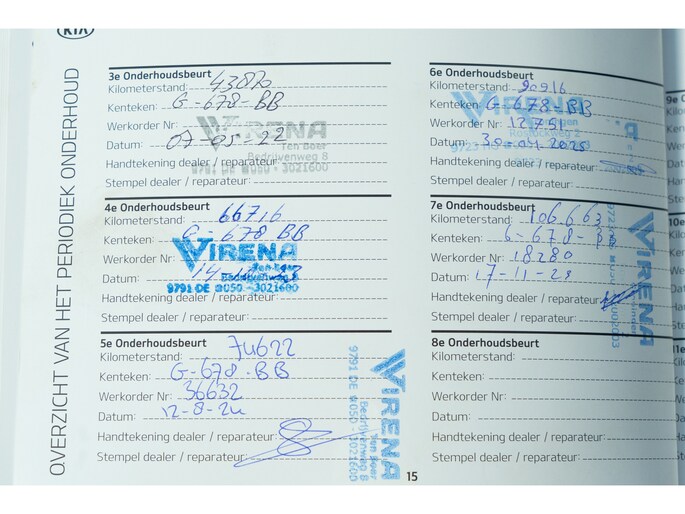 KIA
OVERZICHT VAN HET PERIODIEK ONDERHOUD
3e Onderhoudsbeurt
Kilometerstand: 43870
Kenteken: G-678-BB
Werkorder Nr:
Datum: 07-05-22
Handtekening dealer / reparateur:
Stempel dealer / reparateur:
VIRENA
Ten Boer
Bedrijvenweg 8
9791 DE ☎050 - 3021600
4e Onderhoudsbeurt
Kilometerstand: 66716
Kenteken: G-678 BB
Werkorder Nr:
Datum: 14
Handtekening dealer / reparateur:
Stempel dealer / reparateur:
VIRENA
Ten Boer
Bedrijvenweg 8
9791 DE ☎050 -3021600
5e Onderhoudsbeurt
Kilometerstand: 74622
Kenteken: G-678-BB
Werkorder Nr: 36632
Datum: 12-8-24
Handtekening dealer / reparateur:
Stempel dealer / reparateur:
VIRENA
Ten Boer
Bedrijvenweg 8
9791 DE ☎050 - 3021600
15
6e Onderhoudsbeurt
Kilometerstand: 90916
Kenteken: G-678-BB
Werkorder Nr: 12751
Datum: 30-04-2025
Handtekening dealer / reparateur:
Stempel dealer / reparateur:
VIRENA
9723
7e Onderhoudsbeurt
Kilometerstand: 106.663
Kenteken: G-678-BB
Werkorder Nr: 18280
Datum: 17-11-25
Handtekening dealer / reparateur:
Stempel dealer / reparateur:
VIRENA
8e Onderhoudsbeurt
Kilometerstand:
Kenteken:
Werkorder Nr:
Datum:
Handtekening dealer / reparateur:
Stempel dealer / reparateur: